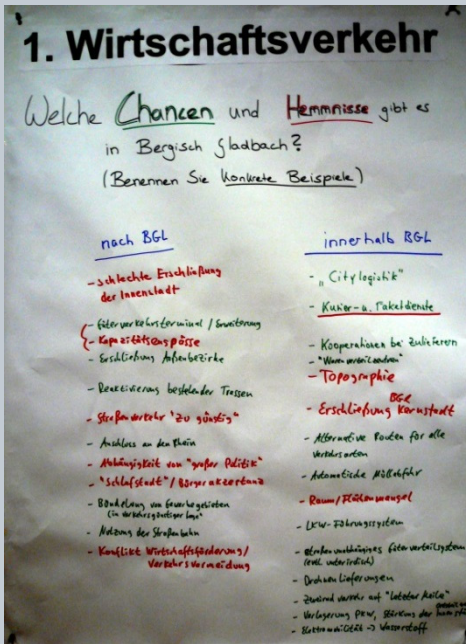 1. Wirtschaftsverkehr
Welche Chancen und Hemmnisse gibt es
in Bergisch Gladbach?
(Benennen Sie konkrete Beispiele)
nach BGL
- schlechte Erschließung
der Innenstadt
- Güterverkehrsterminal / Erweiterung
- Kapazitätsengpässe
- Erschließung Außenbezirke
- Reaktivierung bestehender Trassen
- Straßenverkehr "zu günstig"
- Anschluss an den Rhein
- Abhängigkeit von "großer Politik"
- "Schlafstadt" / Bürgerakzeptanz
- Bündelung von Gewerbegebieten
(in verkehrsgünstiger Lage)
- Nutzung der Straßenbahn
- Konflikt Wirtschaftsförderung /
Verkehrsvermeidung
innerhalb BGL
- "Citylogistik"
- Kurier- u. Paketdienste
- Kooperationen bei Zulieferern
- "Warenverteilzentren"
- Topographie
- Erschließung BGL Kernstadt
- Alternative Routen für alle
Verkehrsarten
- Automatische Müllabfuhr
- Raum/Flächenmangel
- LKW-Führungssystem
- straßenunabhängiges Güterverteilsystem
(evtl. unterirdisch)
- Drohnenlieferungen
- Zweiradverkehr auf "letzter Meile"
- Verlagerung PKW, Stärkung der
- Elektromobilität -> Wasserstoff